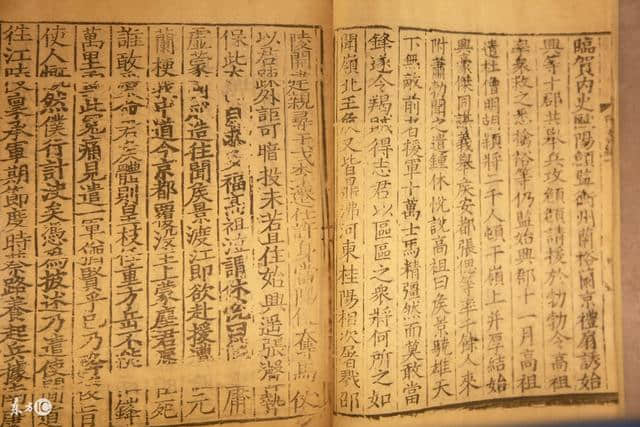 臨賀內史歐陽頠監衡州蘭裕蘭京禮扇誘始
興等十郡共舉兵攻頠頠請援於勃勃令高祖
率衆救之悉擒裕等仍監始興郡十一月高祖
遣杜僧明胡穎將二千人頓于嶺上并厚結始
興豪傑同謀義舉侯安都張偲等率千餘人來
附蕭勃聞之遣鍾休悅說高祖曰侯景驍雄天
下無敵前者援軍十萬士馬精彊然而莫敢當
鋒遂令羯賊得志君以區區之衆將何所之如
聞嶺北王侯又皆鼎沸河東桂陽相次屠戮邵
陵開建親尋干戈李遷仕許當陽奪馬仗
以君疎外詎可暗投未若且住始興遙張聲勢
保此太自求多福高祖泣謂休悅曰庸
虛蒙國造往聞侯景渡江即欲赴援遭元
蘭梗我中道今京都覆沒主上蒙塵君死
誰敢愛命君侯體則皇枝任重方岳不能鋒
萬里雪此冤痛見遣一軍猶賢乎已乃旨
使人慨然僕行計決矣憑為披述乃遣使間道
往江陵稟承軍期節度時蔡路養起兵據南